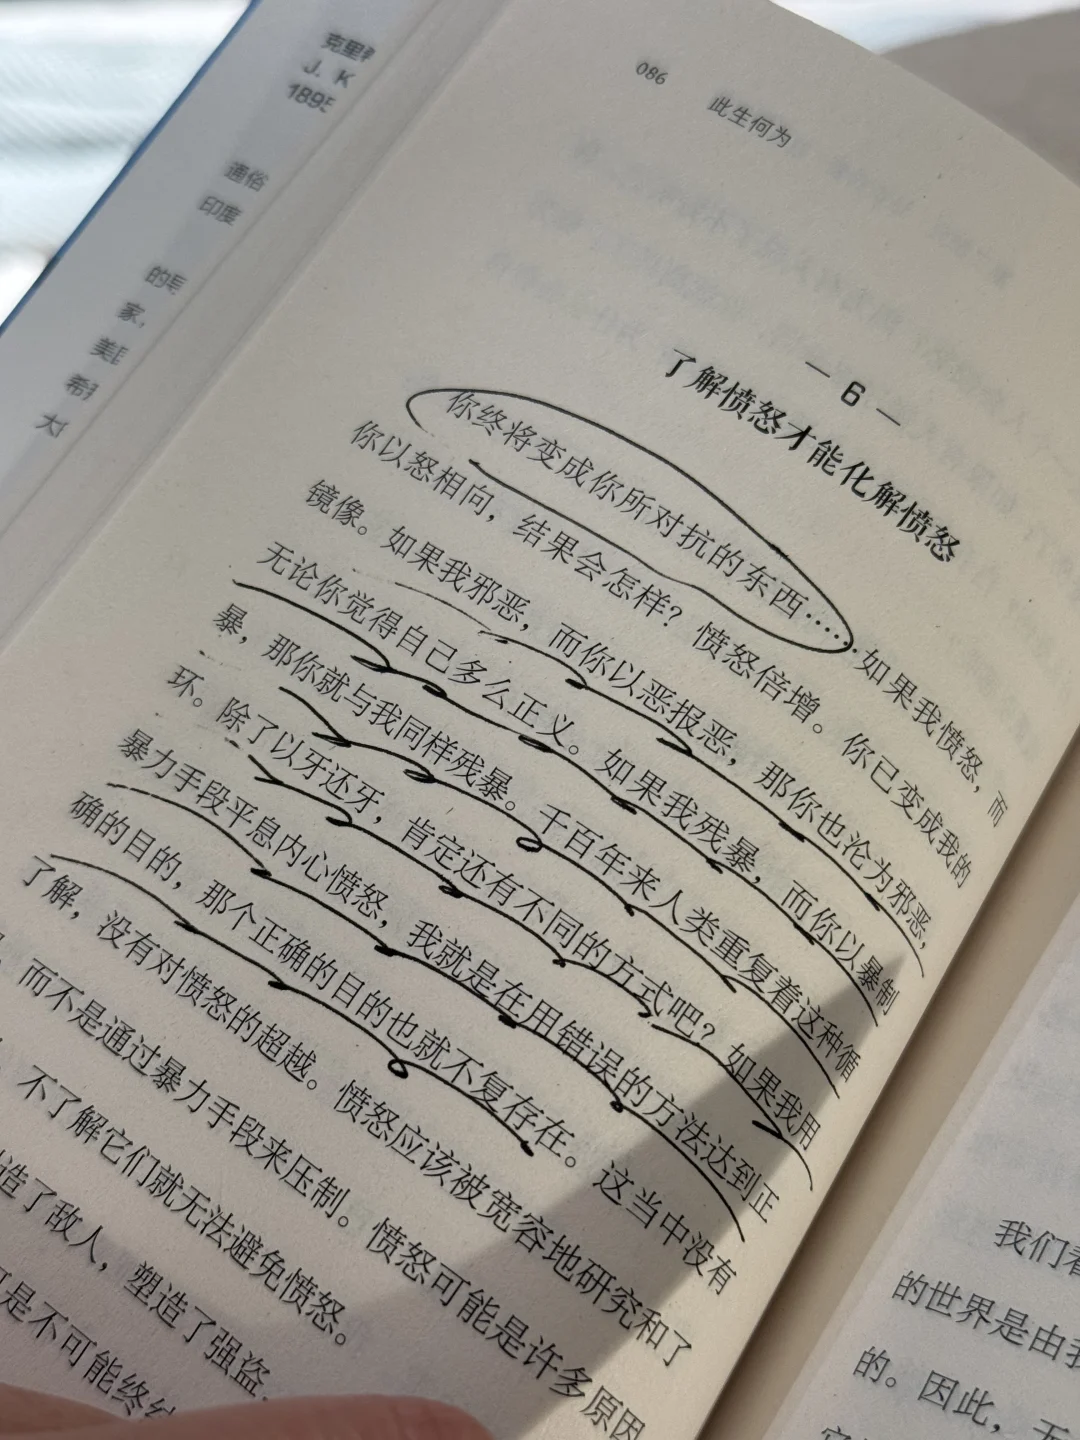 086
此生何为
— 6 —
了解愤怒才能化解愤怒
你终将变成你所对抗的东西……如果我愤怒，而
你以怒相向，结果会怎样？愤怒倍增。你已变成我的
镜像。如果我邪恶，而你以恶报恶，那你也沦为邪恶，
无论你觉得自己多么正义。如果我残暴，而你以暴制
暴，那你就与我同样残暴。千百年来人类重复着这种循
环。除了以牙还牙，肯定还有不同的方式吧？如果我用
暴力手段平息内心愤怒，我就是在用错误的方法达到正
确的目的，那个正确的目的也就不复存在。这当中没有
了解，没有对愤怒的超越。愤怒应该被宽容地研究和了
，而不是通过暴力手段来压制。愤怒可能是许多原因
不了解它们就无法避免愤怒。
造了敌人，塑造了强盗
是不可能终
克里
J. K
1895
通俗
印度
的
家，
美
希
大
我们
的世界是由
的。因此，无